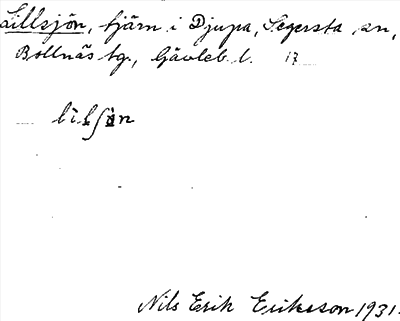 Lillsjön, tjärn i Djupa, Segersta sn,
Bollnäs tg., Gävleb. l. 17
Nils Erik Eriksson 1931.